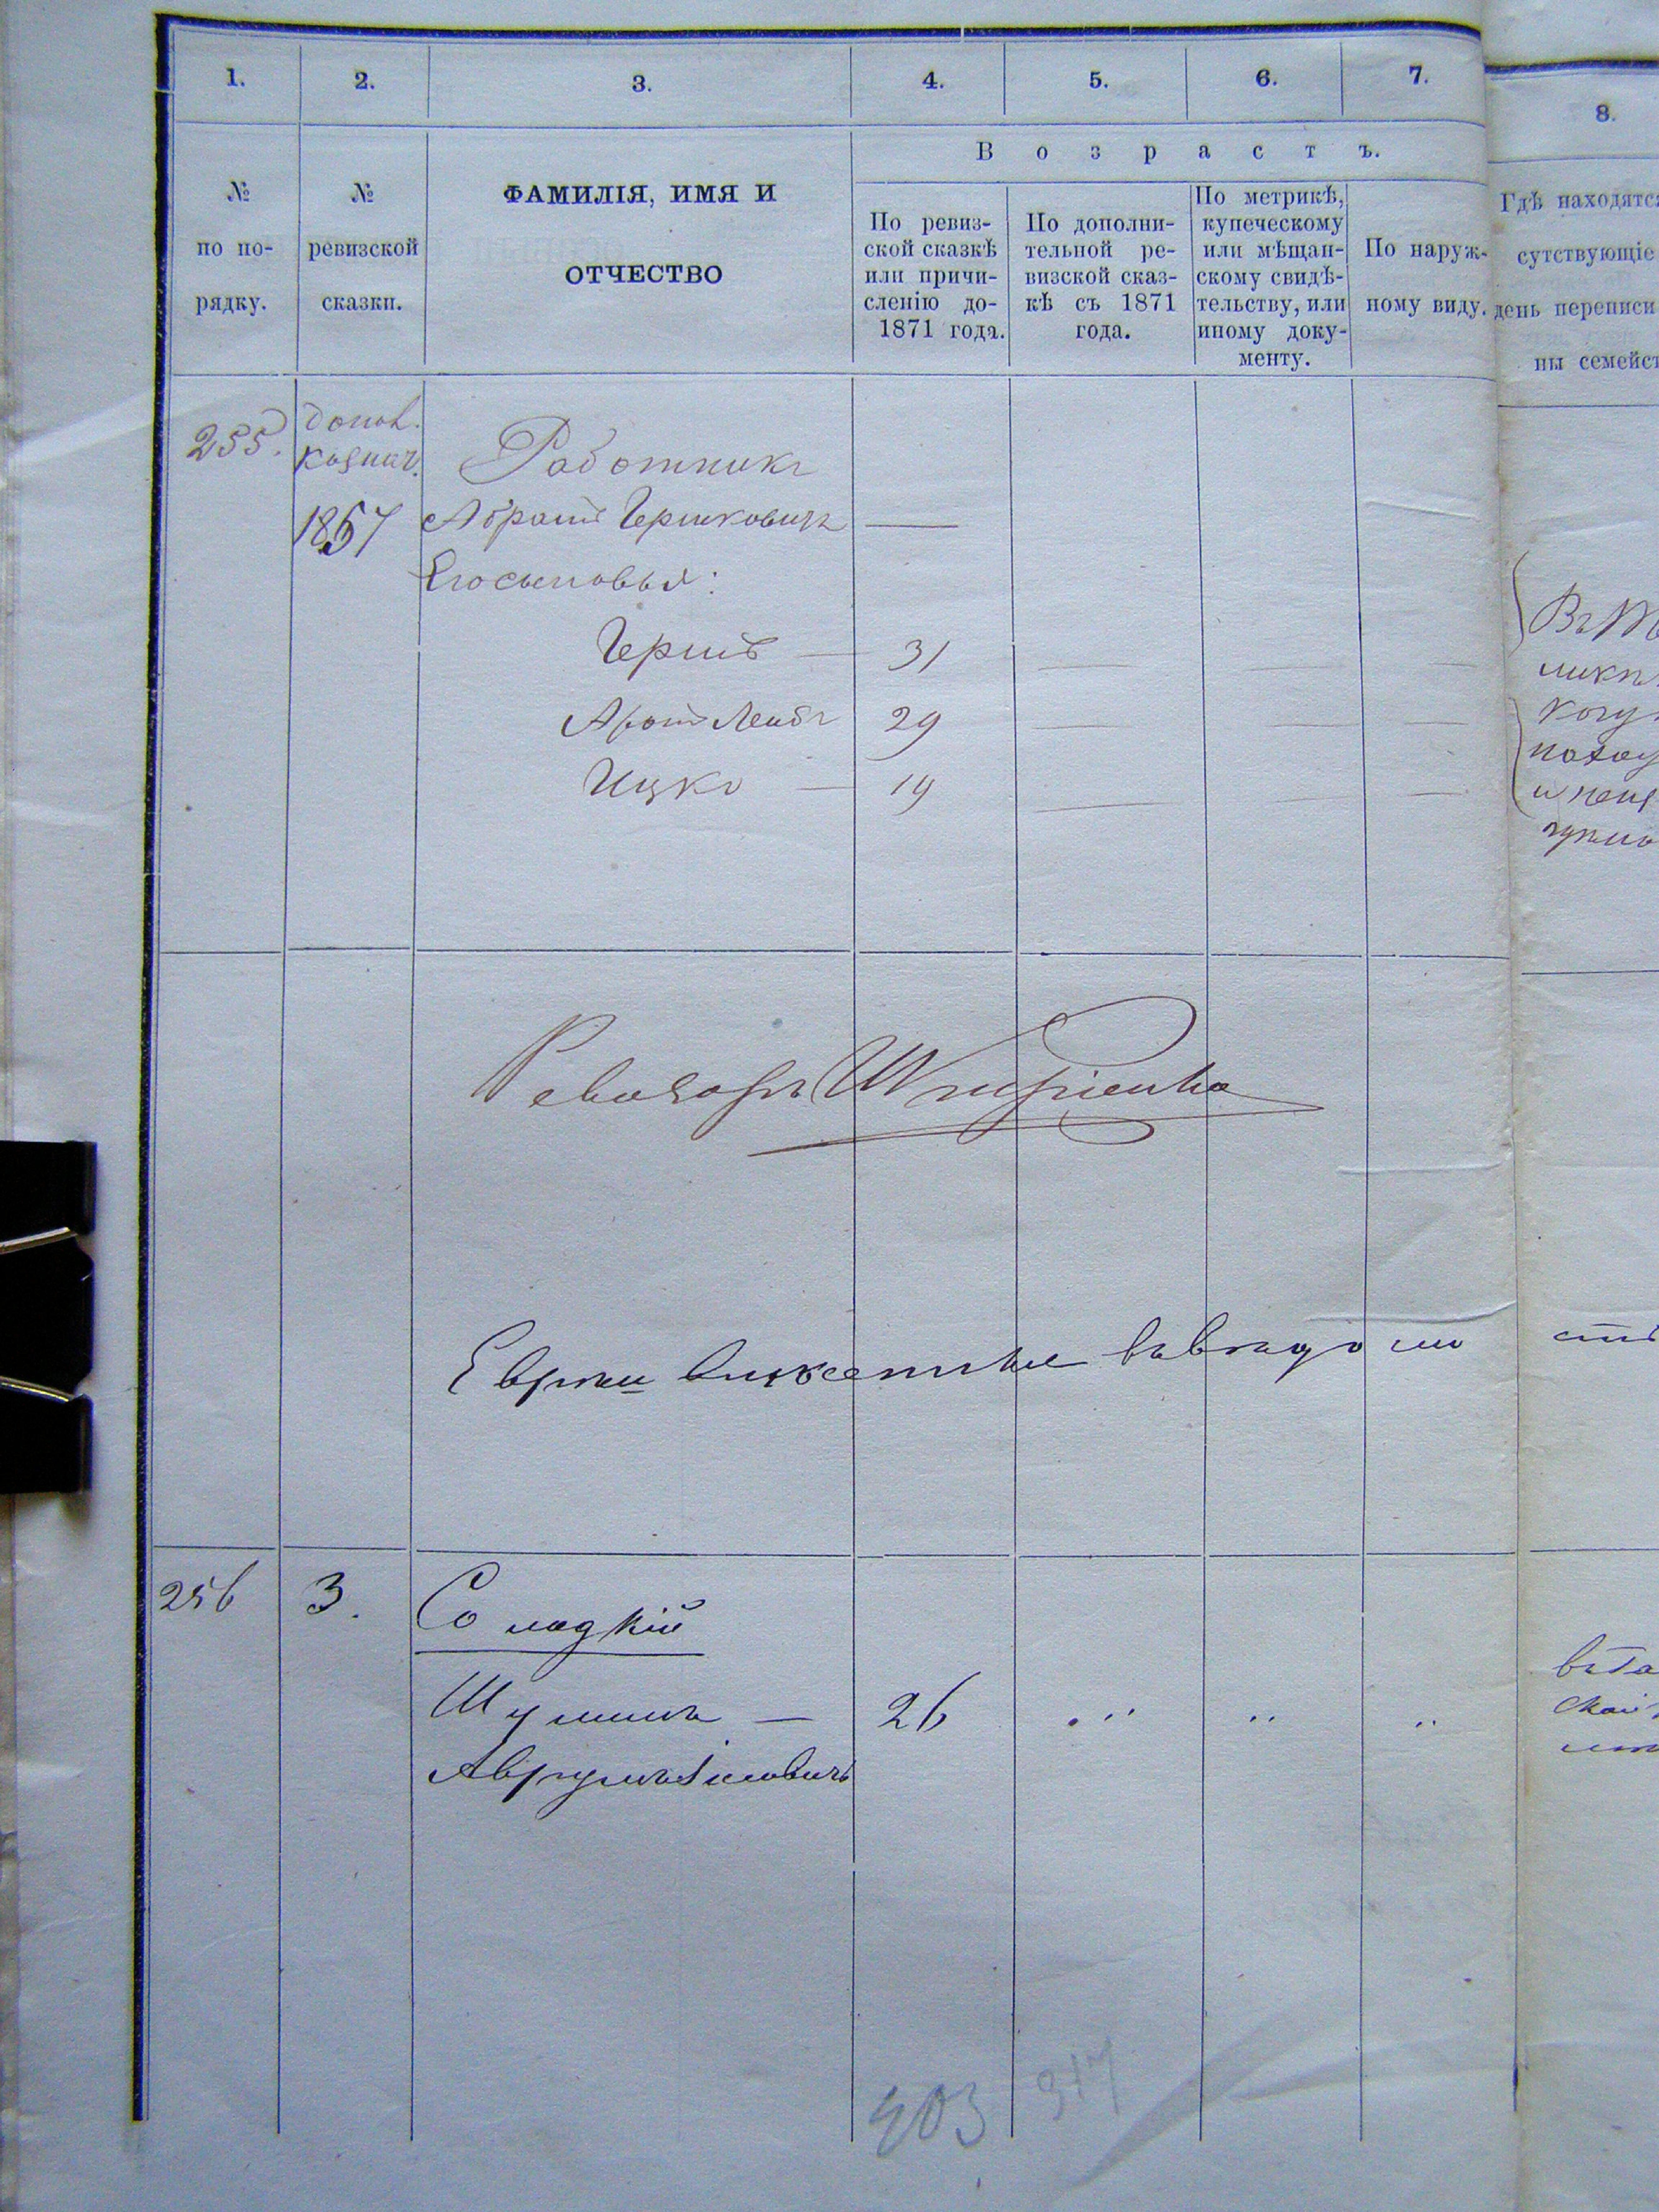 1. 2. 3. 4. 5. 6. 7. 8.
№ по по-рядку.
№ ревизской сказки.
ФАМИЛІЯ, ИМЯ И
ОТЧЕСТВО
Возрастъ.
По ревиз-
ской сказкѣ
или причи-
сленію до-
1871 года.
По дополни-
тельной ре-
визской сказ-
кѣ съ 1871
года.
По метрикѣ,
купеческому
или мѣщан-
скому свидѣ-
тельству, или
иному доку-
менту.
По наруж-
ному виду.
Гдѣ находятс
сутствующіе
день переписи
ны семейст
255.
1857
Работникъ
Абрамъ Гершковичъ
Его сыновья:
Гершъ — 31
Аронъ Лейбъ 29
Ицко — 19
Ревизоръ
Евреи
256 3. Сладкій
Шулимъ — 26
Аврумъ
403 317